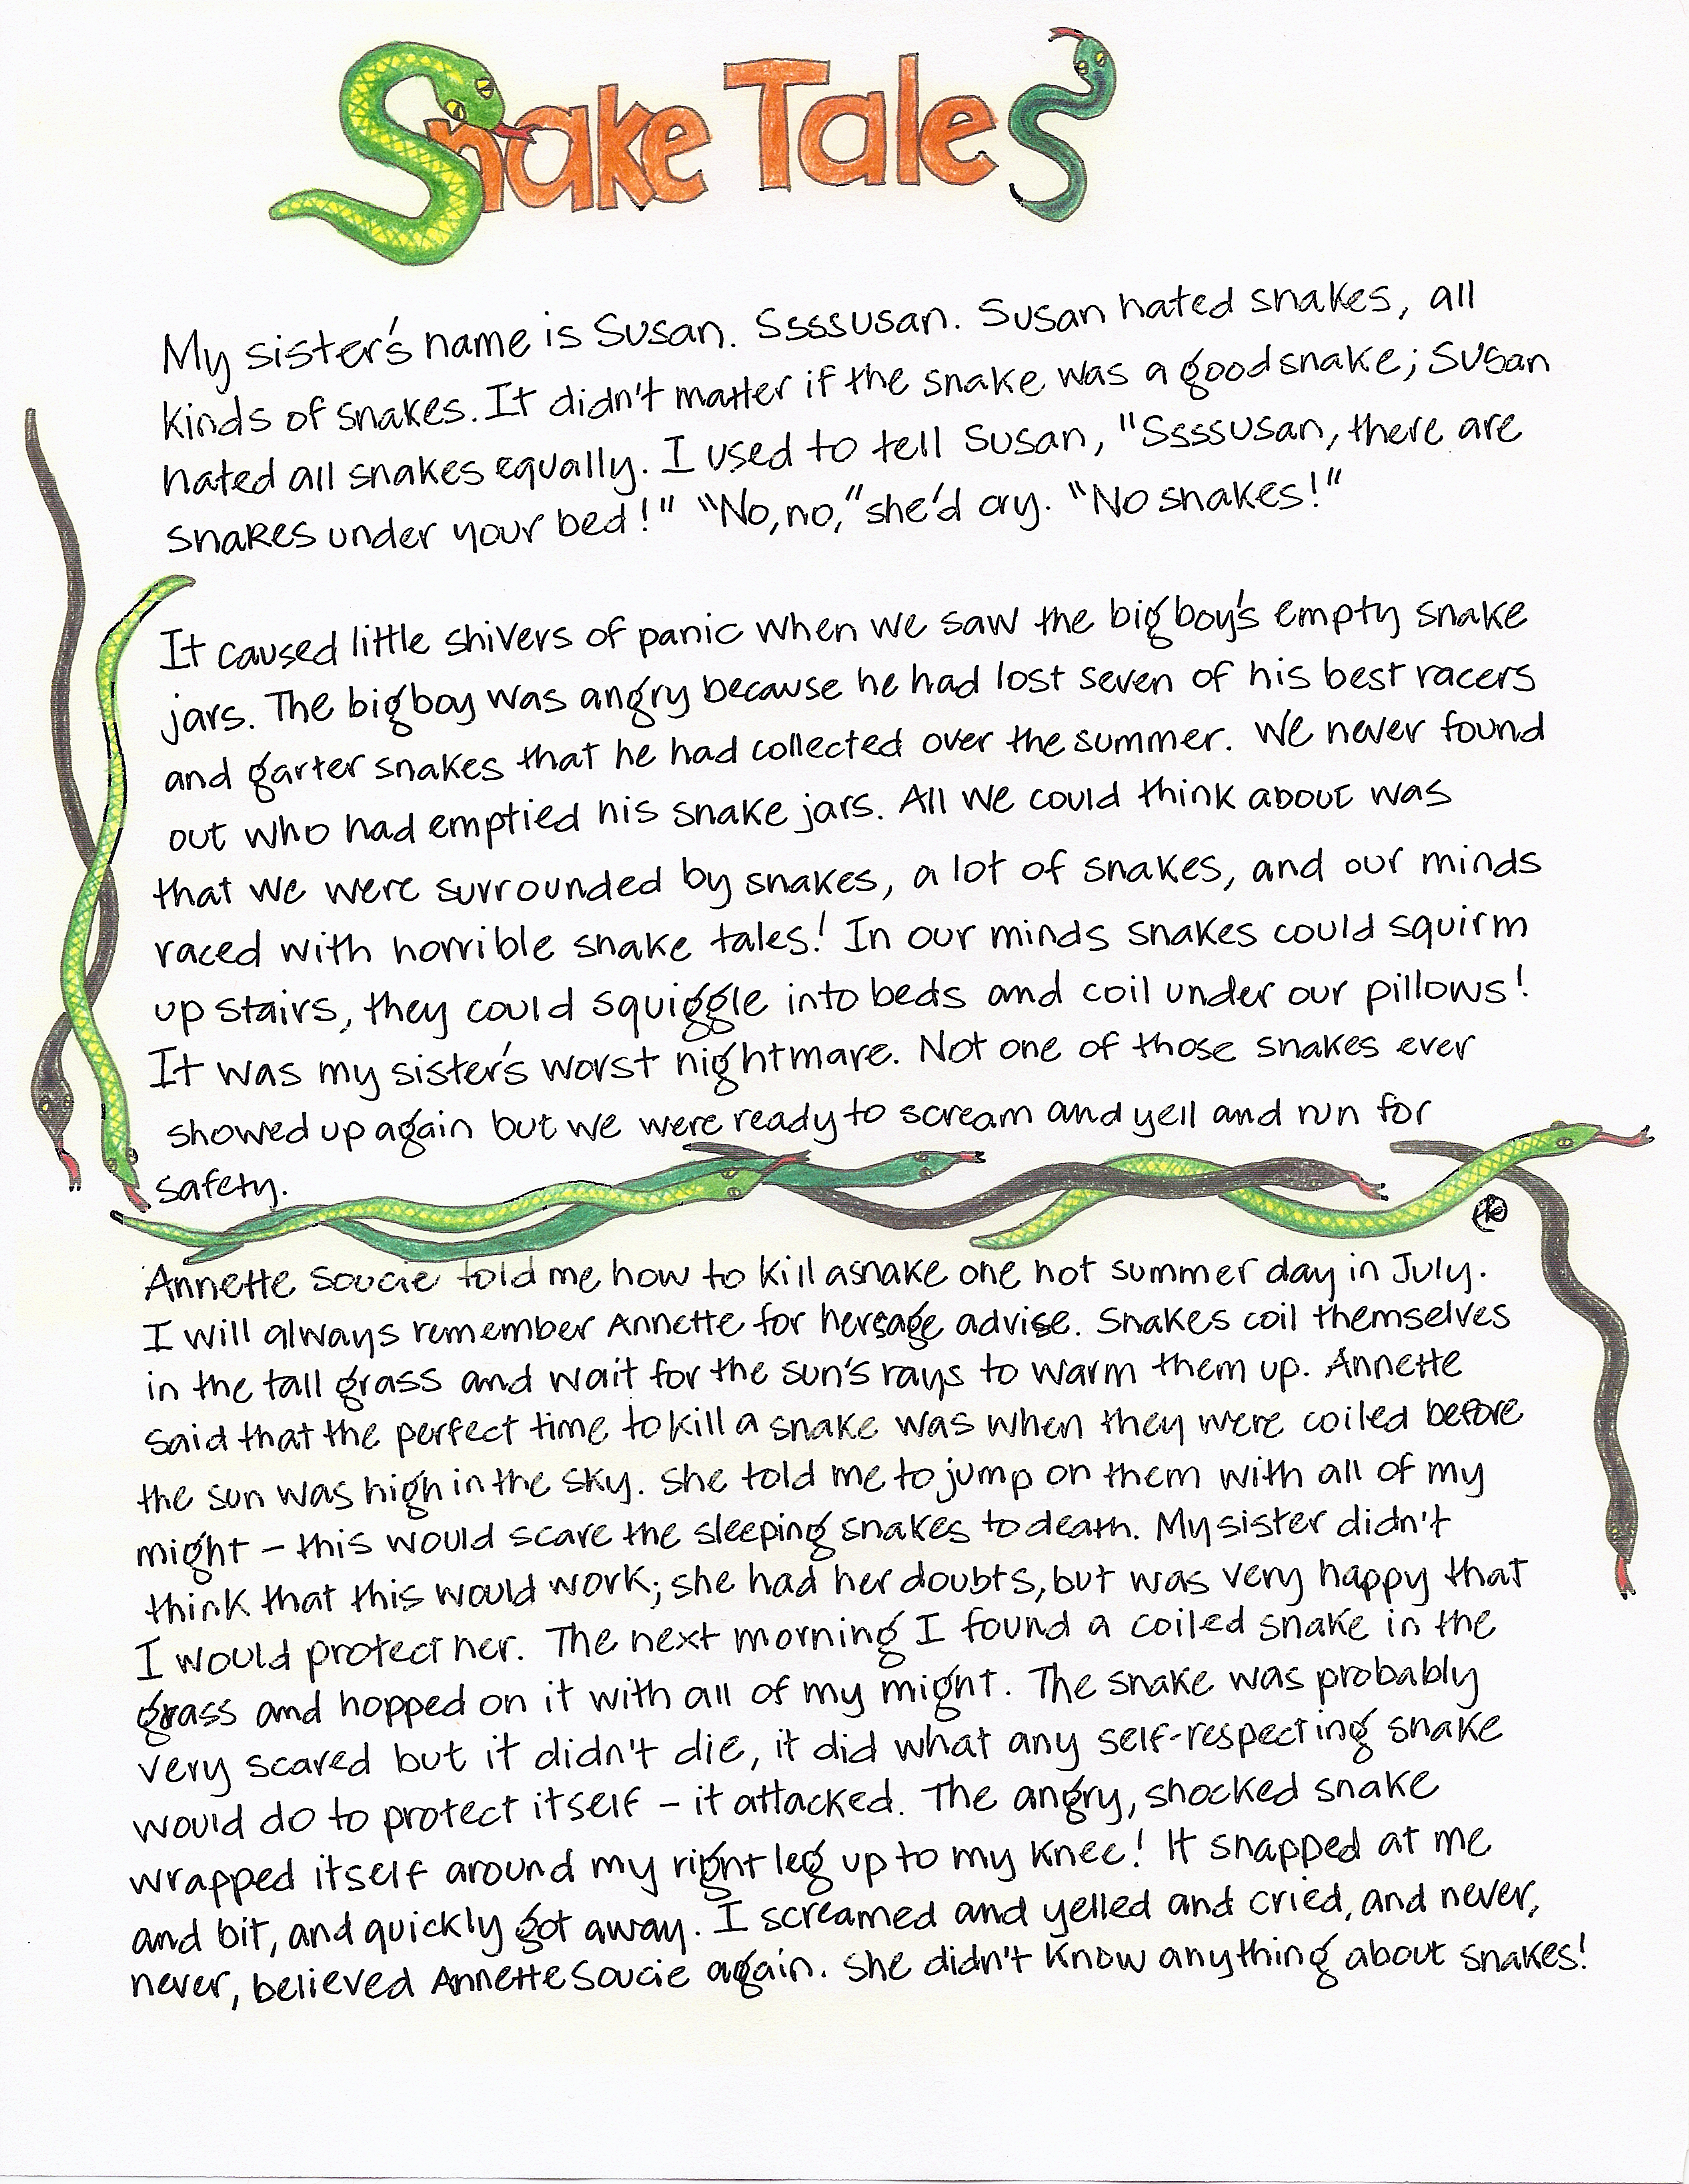 Snake Tales
My sister's name is Susan. Ssssusan. Susan hated snakes, all
kinds of snakes. It didn't matter if the snake was a good snake; Susan
hated all snakes equally. I used to tell Susan, "Ssssusan, there are
snakes under your bed!" "No, no," she'd cry. "No snakes!"
It caused little shivers of panic when we saw the big boy's empty snake
jars. The big boy was angry because he had lost seven of his best racers
and garter snakes that he had collected over the summer. We never found
out who had emptied his snake jars. All we could think about was
that we were surrounded by snakes, a lot of snakes, and our minds
raced with horrible snake tales! In our minds snakes could squirm
up stairs, they could squiggle into beds and coil under our pillows!
It was my sister's worst nightmare. Not one of those snakes ever
showed up again but we were ready to scream and yell and run for
safety.
Annette Soucie told me how to kill a snake one hot summer day in July.
I will always remember Annette for her sage advise. Snakes coil themselves
in the tall grass and wait for the sun's rays to warm them up. Annette
said that the perfect time to kill a snake was when they were coiled before
the sun was high in the sky. She told me to jump on them with all of my
might – this would scare the sleeping snakes to death. My sister didn't
think that this would work; she had her doubts, but was very happy that
I would protect her. The next morning I found a coiled snake in the
grass and hopped on it with all of my might. The snake was probably
very scared but it didn't die, it did what any self-respecting snake
would do to protect itself – it attacked. The angry, shocked snake
wrapped itself around my right leg up to my knee! It snapped at me
and bit, and quickly got away. I screamed and yelled and cried, and never,
never, believed Annette Soucie again. She didn't know anything about snakes!